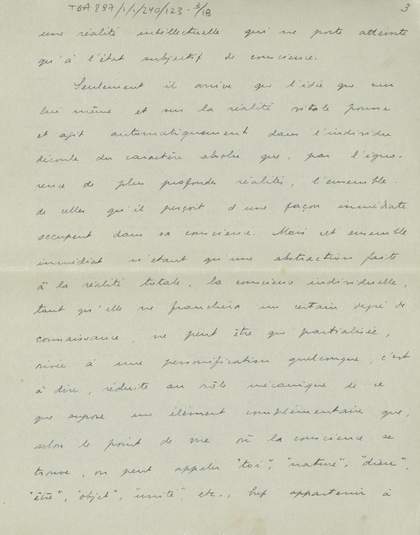 TGA 897/1/1/240/123-3/18
3
une réalité intellectuelle qui ne porte atteinte
qu'à l'état subjectif de conscience.
Seulement il arrive que l'idée que sur
lui même et sur la réalité totale pense
et agit automatiquement dans l'individu
découle du caractère absolu que, par l'igno-
rence de plus profondes réalités, l'ensemble
de celles qu'il perçoit d'une façon immédiate
occupent dans sa conscience. Mais cet ensemble
immédiat n'étant qu'une abstraction faite
à la réalité totale, la conscience individuelle,
tant qu'elle ne franchira un certain degré de
connaissance, ne peut être que partialisée,
rivée à une personnification quelconque, c'est
à dire, réduite au rôle mécanique de ce
que suppose un élément complémentaire que,
selon le point de vue où la conscience se
trouve, on peut appeler "toi", "nature", "dieu",
"être", "objet", "unité" etc., bref appartenir à